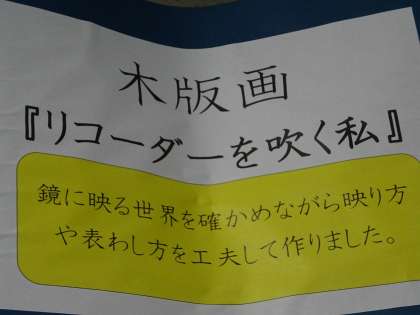 木版画
『リコーダーを吹く私』
鏡に映る世界を確かめながら映り方
や表わし方を工夫して作りました。